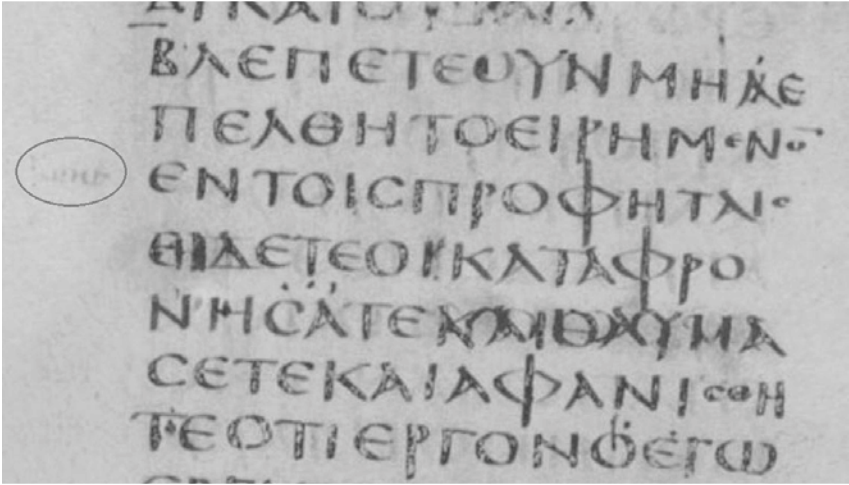 ΔΙΚΑΙΟΥΤΑΙ
ΒΛΕΠΕΤΕΟΥΝΜΗΑΕ
ΠΕΛΘΗΤΟΕΙΡΗΜΕΝΟ̅
ΕΝΤΟΙCΠΡΟΦΗΤΑΙC
ΕΙΔΕΤΕΟΙΚΑΤΑΦΡΟ
ΝΗCΑΤΕΚΑΙΘΑΥΜΑ
CΕΤΕΚΑΙΑΦΑΝΙCΘΗ
ΤΕΟΤΙΕΡΓΟΝΟΕΓΩ